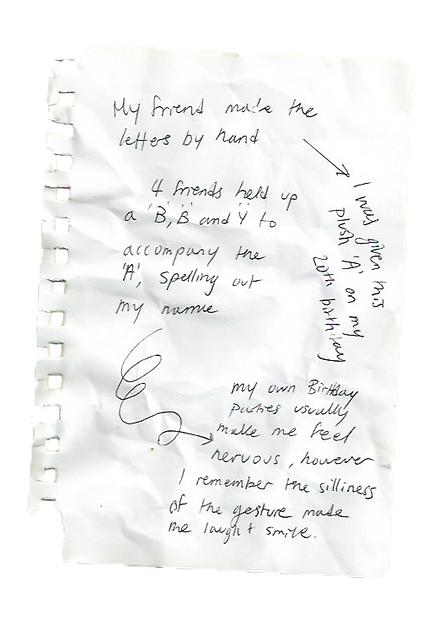 My friend made the
letters by hand
I was given this
plush 'A' on my
20th birthday
4 friends held up
a 'B', 'B' and 'Y' to
accompany the
'A', spelling out
my name
my own Birthday
parties usually
make me feel
nervous, however
I remember the silliness
of the gesture made
me laugh + smile.